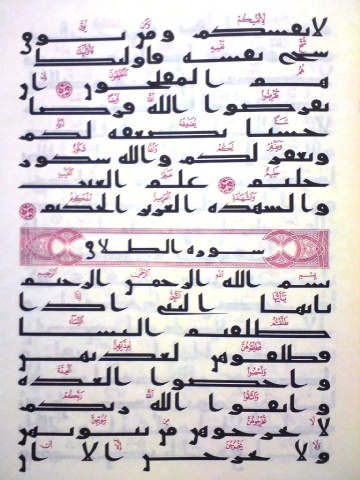 لأنفسكم ومن يوق
شح نفسه فأولئك
هم المفلحون إن
تقرضوا الله قرضا
حسنا يضعفه لكم
ويغفر لكم والله شكور
حليم علم الغيب
والشهدة العزيز الحكيم
سورة الطلاق
بسم الله الرحمن الرحيم
يأيها النبي إذا
طلقتم النسا
فطلقوهن لعدتهن
وأحصوا العدة
واتقوا الله ربكم
لا تخرجوهن من بيوتهن
ولا يخرجن إلا أن